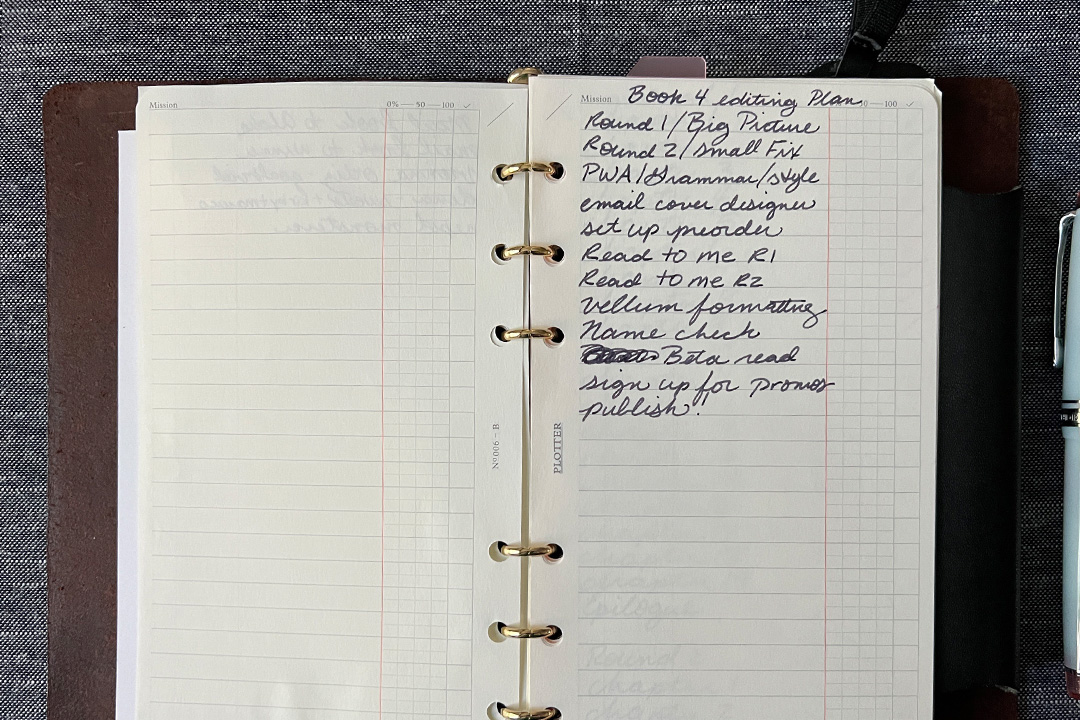 Mission 0% 50 100 ✓
Mission Book 4 editing Plan 0 100 ✓
Round 1/Big Picture
Round 2/small Fix
PWA/Grammar/style
email cover designer
set up preorder
Read to me R1
Read to me R2
Vellum formatting
Name check
Beta read
sign up for promos
publish!
Nº 006 - B
PLOTTER
epilogue
Round 2
chapter 1